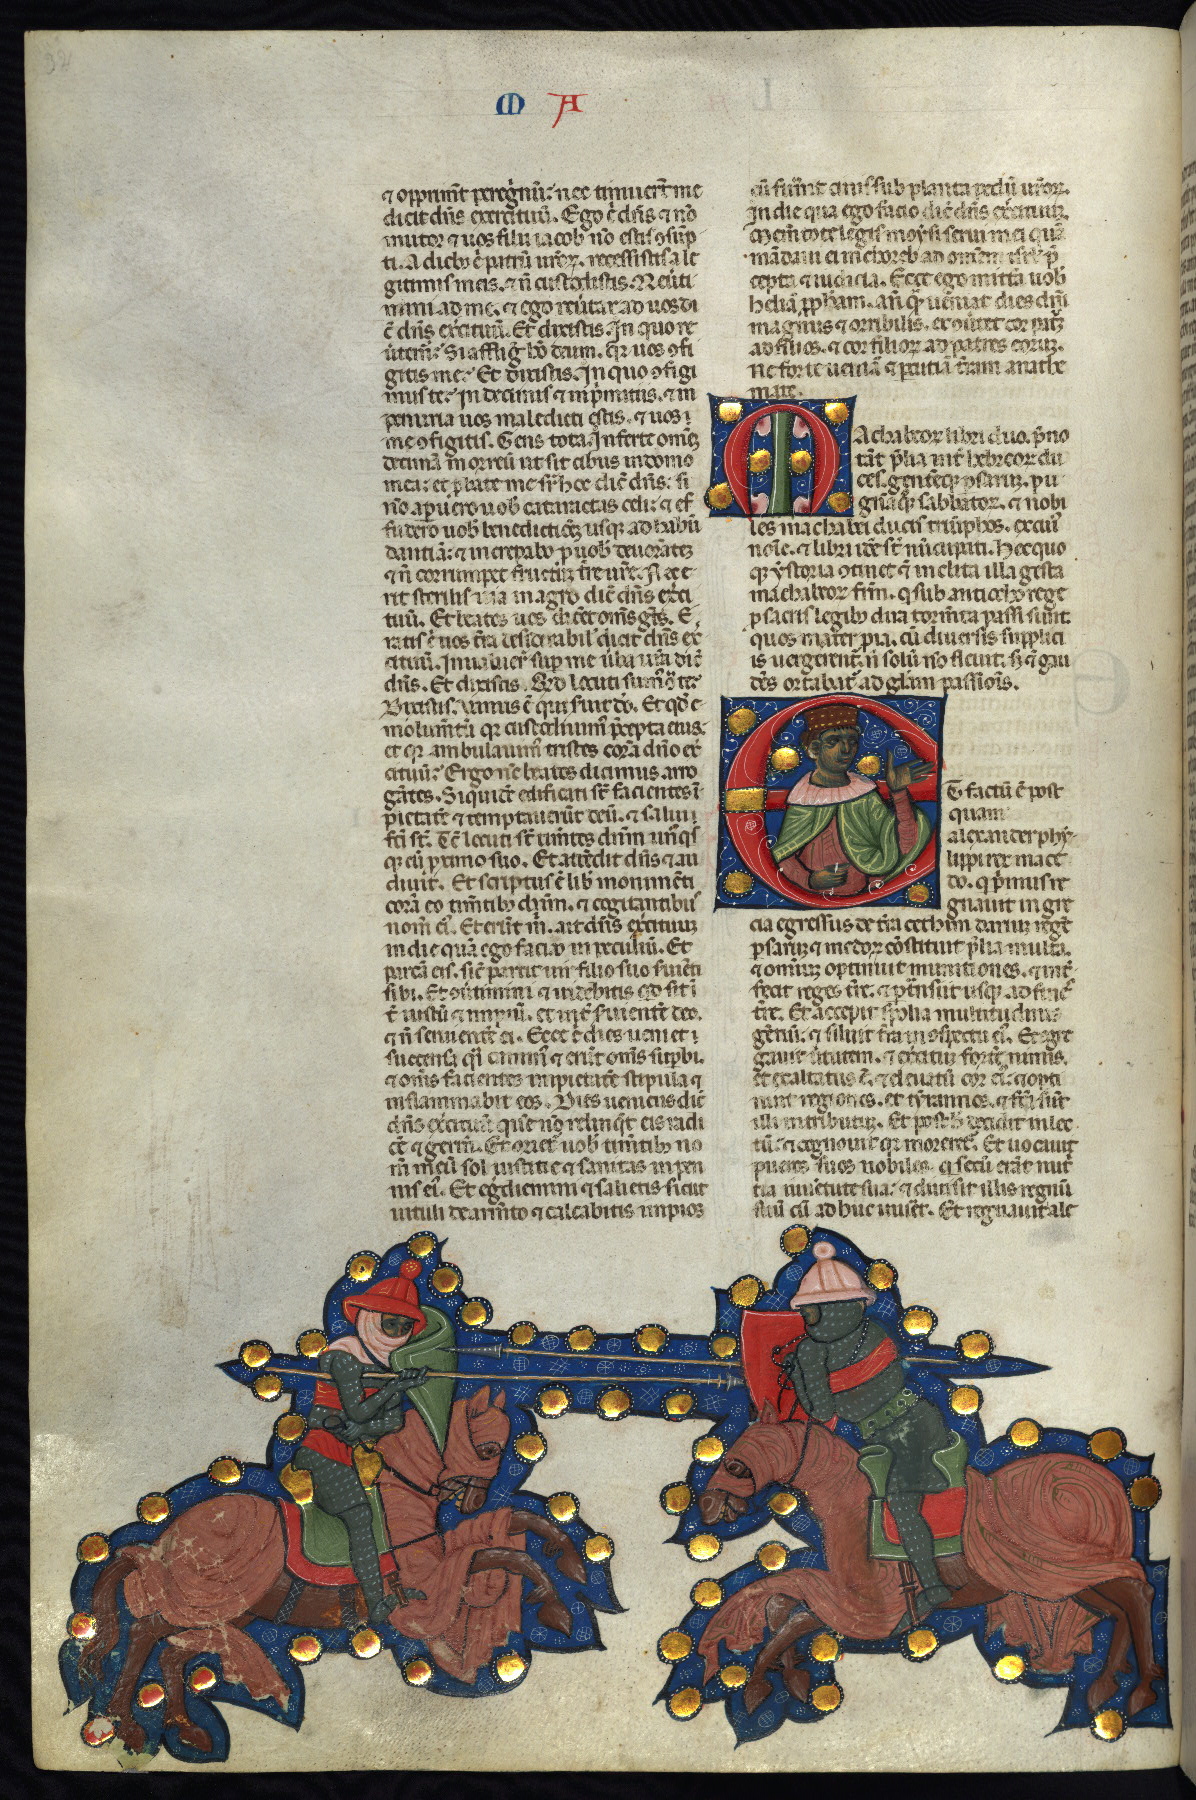 32
M A
⁊ opprimūt peregͥnū: nec timuerūt me
dicit dn̄s exercituū. Ego .n. dn̄s ⁊ nō
mutor ⁊ uos filii iacob nō estis ↄsūp
ti. A dieb; .n. patrū uroꝝ. recessistis a le
gitimis meis. ⁊ n̄ custodistis. Reūti
mini ad me. ⁊ ego reūtar ad uos di
c̄ dn̄s exͨituū. Et dixistis. In quo re
ūtem̄? Si affliget hō deum. qr uos ↄfi
gitis me? Et dixistis. In quo ↄfigi
mus te? In decimis ⁊ in pͥmitiis. ⁊ in
penuria uos maledicti estis. ⁊ uos
me ↄfigitis. Gens tota. Inferte omēȝ
decimā in orreū ut sit cibus in domo
mea: et ꝓbate me sr̄ hoc dic̄ dn̄s: si
nō apuero uob̄ cataractas celi: ⁊ ef
fudero uob̄ benedictōȝ usqȝ ad habū
dantiā: ⁊ increpabo ꝓ uob̄ deuorātēȝ
⁊ n̄ corrumpet fructuȝ t̄re ur̄e. Nec e
rit sterilis uīa in agro dic̄ dn̄s exͨi
tuū. Et beatos uos dicēt om̄s gētes. E
ritis .n. uos t̄ra desiderabil̄ dicit dn̄s ex
ͨituū. Inualuer̄ sup me ūba ur̄a dic̄
dn̄s. Et dixistis. Qͥd locuti sum̄ ↄ te?
Dixistis. Vanus ē qui seruit dō. Et qd̄ e
molumētū qr custodiuim̄ p̄cepta eius.
et qr ambulauim̄ tristes corā dn̄o ex
ͨituū? Ergo nc̄ beatos dicimus arro
gātes. Siquidē edificati st̄ facientes ī
pietatē ⁊ temptauerūt deū. ⁊ salui
fc̄i st̄. Tc̄ locuti st̄ timētes dn̄m unͦqͥs
qȝ cū ꝓximo suo. Et attēdit dn̄s ⁊ au
diuit. Et scriptus ē lib̄ monumēti
corā eo timētibȝ dn̄m. ⁊ cogitantibus
nom̄ ei̇. Et erūt m̄. ait dn̄s exͨituuȝ
in die qua ego facio in peculiū. Et
parcā eis. sic̄ parcit uir filio suo ſuiēti
sibi. Et ↄūtimini ⁊ uidebitis qd̄ sit ī
t̄ iustū ⁊ impiū. et int̄ ſuientē deo.
⁊ n̄ seruientē ei. Ecce .n. dies ueniet
succensa qͣi camin̄ ⁊ erūt om̄s supbi.
⁊ om̄s facientes impietatē stipula ⁊
inflammabit eos. Dies ueniens dic̄
dn̄s exͨituū. que nō relinqͣt eis radi
cē ⁊ germ̄. Et oriet̄ uob̄ timētibȝ no
m̄ meū sol iustitie ⁊ sanitas in pen
nis ei̇. Et egdiemini ⁊ salietis sicut
uituli de armēto ⁊ calcabitis impios
cū fuerīt cinis sub planta pedū uroꝝ.
In die qua ego facio dic̄ dn̄s exͨituuȝ.
Mem̄tote legis moysi serui mei quā
mādaui ei in choreb ad omēm isrl̄ p̄
cepta ⁊ iudicia. Ecce ego mittā uob̄
heliā ꝓpham. an̄ qͣ ueniat dies dn̄i
magnus ⁊ orribilis. et ↄūtet cor patȝ
ad filios. ⁊ cor filioꝝ ad patres eoruȝ.
Ne forte ueniā ⁊ percutiā t̄ram anathe
mate.
MAchabeoꝝ libri duo. p̄no
tāt p̄lia int̄ hebreoꝝ du
ces. gentēqȝ psaruȝ. pu
gnāqȝ sabbatoꝝ. ⁊ nobi
les machabei ducis triūphos. ex cui̇
noīe. ⁊ libri idē st̄ nūcupati. Hec quo
qȝ ystoria ↄtinet ⁊ inclita illa gesta
machabeoꝝ frūm. q̄ sub antiocho rege
ꝓ sacris legibȝ dira tormēta passi sunt.
quos mater pia. cū diuersis supplici
is uergerent̄. n̄ solū nō fleuit. sȝ ⁊ gau
dēs ortabat̄ ad gl̄am passiōis.
ET factū ē post
quam
alexander phy
lippi rex mace
do. qͥ pͥmus re
gnauit in gre
cia egressus de t̄ra cethim darium regē
psaruȝ ⁊ medoꝝ cōstituit p̄lia multa.
⁊ omiuȝ optinuit munitiones. ⁊ int̄
fecit reges t̄re. ⁊ ptͣnsiit usqȝ ad fines
t̄re. Et accepit spolia multitudinis
gētiū. ⁊ siluit t̄ra in ↄspectu ei̇. Et ↄgre
gauit ūtutem. ⁊ exͨituȝ fortē nimis.
et exaltatus ē. ⁊ eleuatū cor ei̇. ⁊ opti
nuit regiones. et tyrannos. ⁊ fc̄i sūt
illi in tributuȝ. Et post h̄ decidit in lec
tū: ⁊ cognouit qr moreret̄. Et uocauit
pueros suos nobiles. qͥ secū erāt nut̄
ti a iuuētute sua: ⁊ diuisit illis regnū
suū cū adhuc uiuet̄. Et regnauit ale